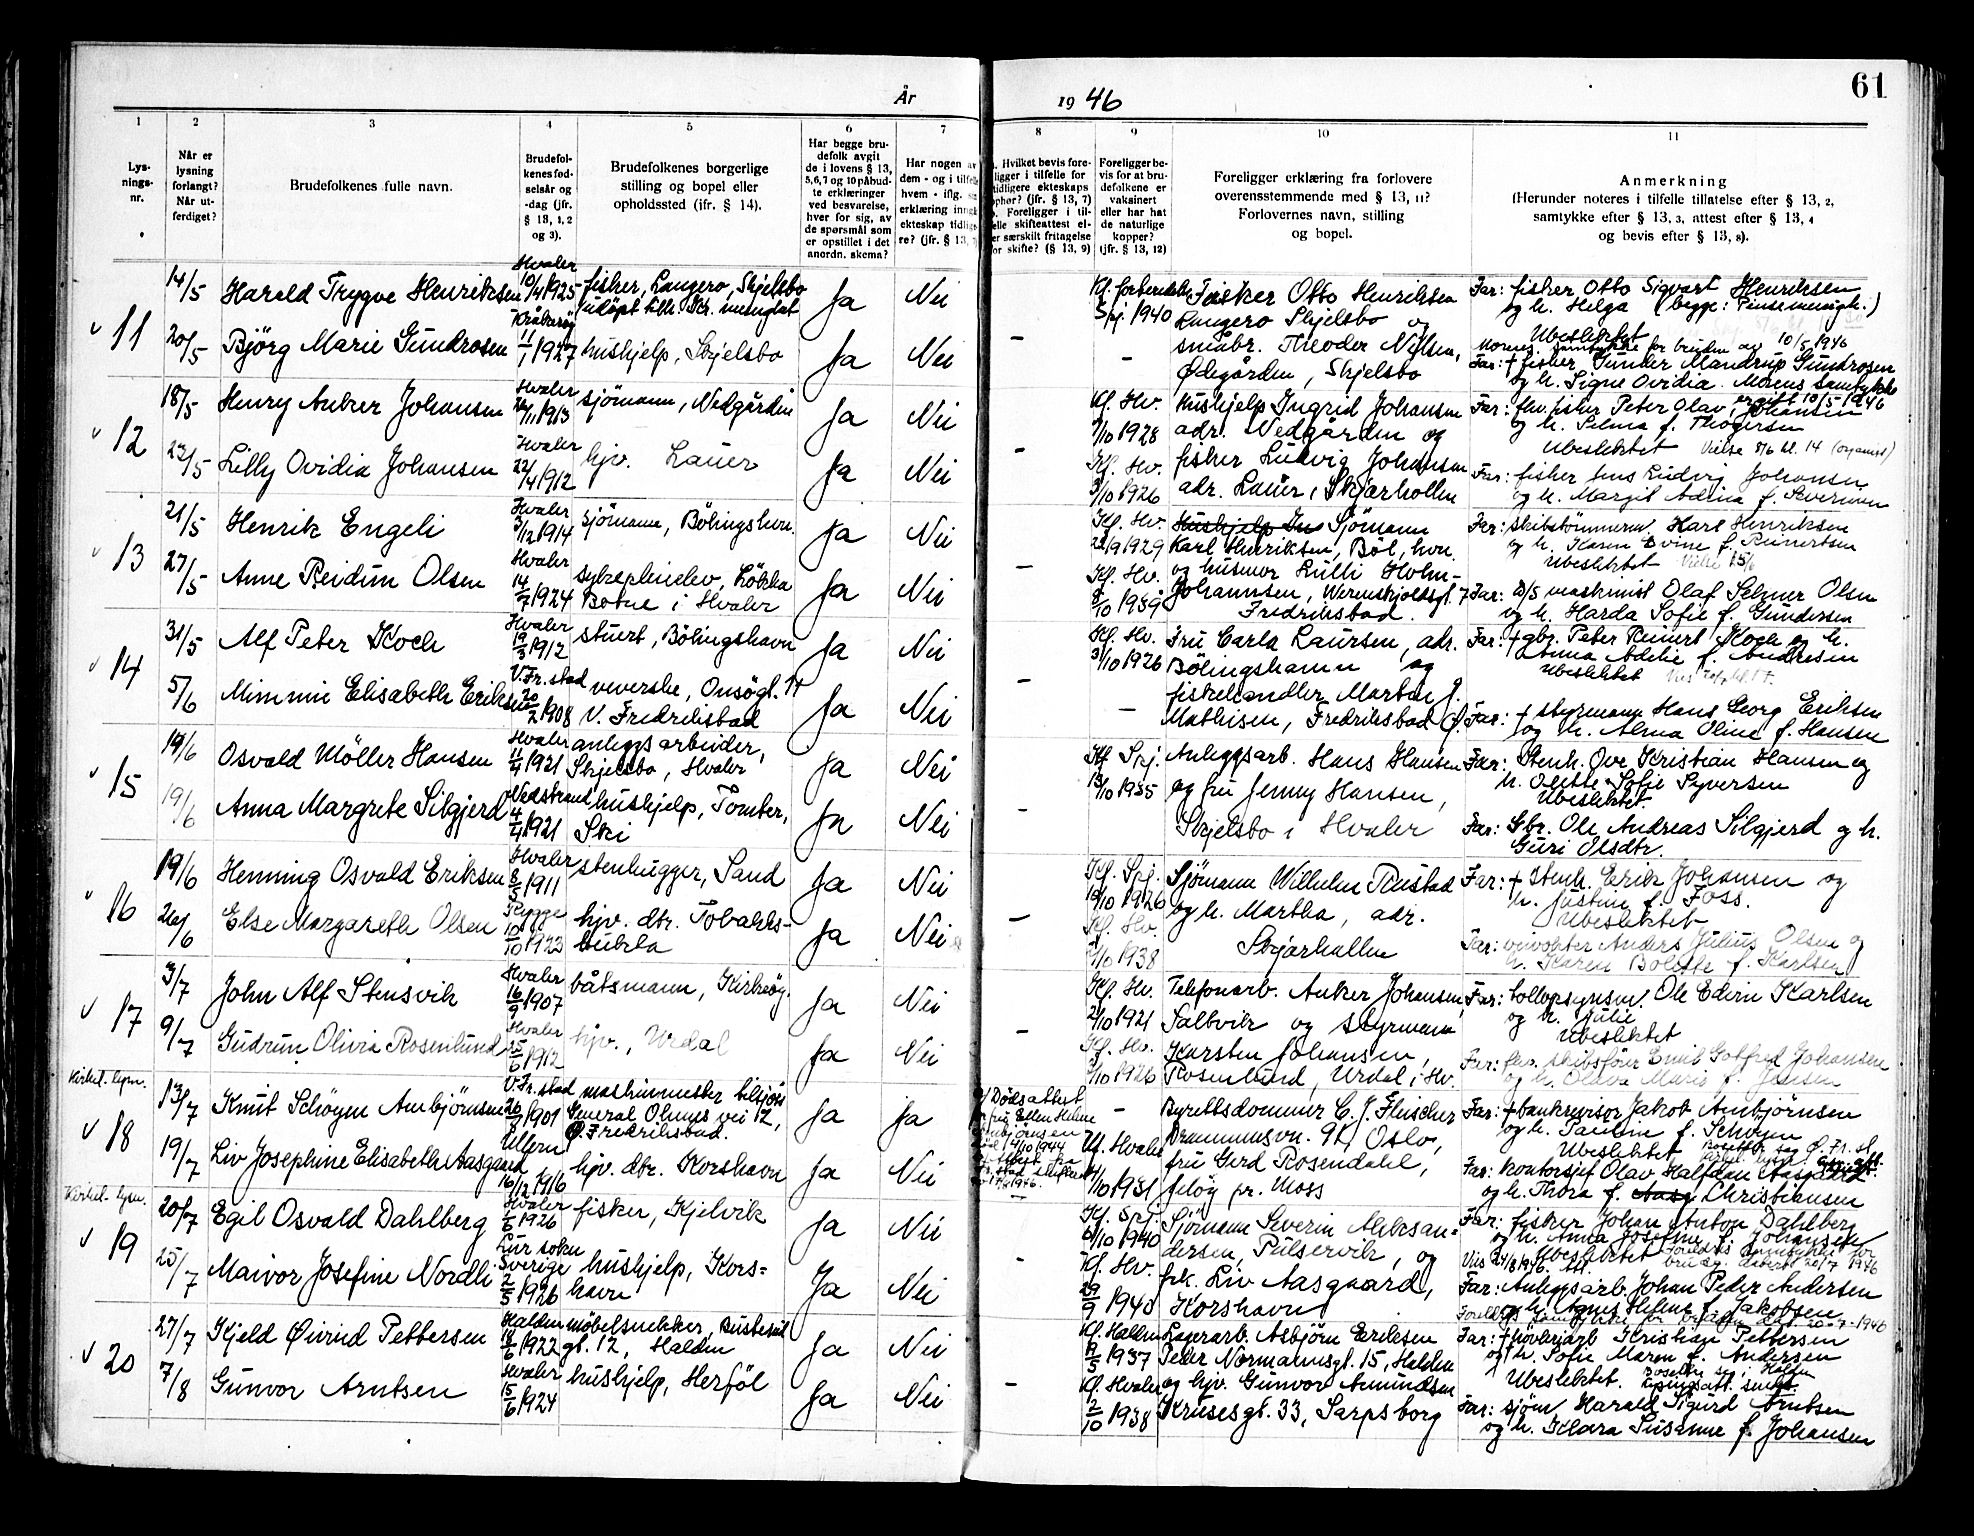 År
19 46
61
1
2
3
4
5
6
7
8
9
10
11
Lys-
nings-
nr.
Når er
lysning
forlangt?
Når ut-
ferdiget?
Brudefolkenes fulle navn.
Brudefol-
kenes fød-
selsår og
-dag (jfr.
§ 13, 1, 2
og 3).
Brudefolkenes borgerlige
stilling og bopel eller
opholdssted (jfr. § 14).
Har begge bru-
defolk avgit
de i lovens § 13,
5,6,7 og 10 påbud-
te erklæringer
ved besvarelse,
hver for sig, av
de spørsmål som
er opstillet i det
anordn. skema?
Har nogen av
dem - og i tilfelle
hvem - iflg.
erklæring inngått
ekteskap tidlige-
re? (jfr. § 13,
Hvilket bevis fore-
ligger i tilfelle for
tidligere ekteskaps
ophør? (jfr. § 13, 7)
Foreligger i til-
felle skifteattest el-
ler særskilt fritagelse
for skifte? (§ 13, 9)
Foreligger be-
vis for at bru-
defolkene er
vaksinert
eller har hat
de naturlige
kopper?
(jfr. § 13, 12)
Foreligger erklæring fra forlovere
overensstemmende med § 13, 11?
Forlovernes navn, stilling
og bopel.
Anmerkning
(Herunder noteres i tilfelle tillatelse efter § 13, 2,
samtykke efter § 13, 3, attest efter § 13, 4
og bevis efter § 13, 8).
11
14/5 Harald Trygve Henriksen Hvaler 10/4 1925 fisker, Langerø, Skjelsbo Ja Nei
5/1 1940 Fisker Otto Henriksen
Langerø Skjelsbo og
småbr. Theodor Nilsen,
Ødegården, Skjelsbo
Far: fisker Otto Sigvart Henriksen
og h. Helga (begge: Pinsemenigh.)
Ubeslektet
20/5 Björg Marie Gundrosen Kråkerøy 11/1 1927 hushjelp, Skjelsbo Ja Nei -
Far: + fisker Gunder Mandrup Gundrosen
og h. Signe Ovidia. Morens samtykke
10/5 1946
12
18/5 Henry Anker Johansen Hvaler 1913 sjömann, Nedgården Ja Nei
Kf. Hv. 1/10 1928 Hushjelp Ingrid Johansen
adr. Nedgården og
fisker Ludvig Johansen
adr. Lauer, Skjærhollen
Far: fhv. fisker Peter Olav Johansen
og h. Selma f. Thogersen
Ubeslektet Vielse 8/6 kl. 14
23/5 Lilly Ovidia Johansen Hvaler 22/4 1912 hjv. Lauer Ja Nei -
Kf. Hv. 3/10 1926
Far: fisher Jens Ludvig Johansen
og h. Margit Adina f. Severinsen
13
21/5 Henrik Engeli Hvaler 3/12 1914 sjömann, Bölingshvn. Ja Nei
Kf. Hv. 22/9 1929 Sjömann
Karl Henriksen, Böl. hvn.
og husmor Lulli Holm-
Johannsen, Wernskjoldsgt. 7
Fredrikstad.
Far: skibstömmerm. Karl Henriksen
og h. Karen Evine f. Reinertsen
Ubeslektet
27/5 Anne Reidun Olsen Hvaler 14/7 1924 Lökka
Botne i Hvaler Ja Nei -
Kf. Hv. 8/10 1939
Far: D/S maskinist Olaf Selmer Olsen
og h. Harda Sofie f. Gundersen
14
31/5 Alf Peter Koch Hvaler 19/3 1912 stuert, Bölingshavn Ja Nei
Kf. Hv. 3/10 1926 Fru Carla Laursen, adr.
Bölingshavn og
fiskehandler Martin J.
Mathisen, Fredrikstad Ø.
Far: + gbr. Peter Reinert Koch og h.
Anna Adelie f. Andresen
Ubeslektet
5/6 Mimmie Elisabeth Eriksen V. Fr.stad 20/2 1908 veverske, Onsögt. 11
V. Fredrikstad Ja Nei -
Far: + styrmann Hans Georg Eriksen
og h. Alma Oline f. Hansen
15
19/6 Osvald Möller Hansen Hvaler 11/4 1921 anleggsarbeider,
Skjelsbo, Hvaler Ja Nei
Kf. Spj. 13/10 1935 Anleggsarb. Hans Hansen
og fru Jenny Hansen,
Skjelsbo i Hvaler
Far: Stenh. Ove Kristian Hansen og
h. Olette Sofie Syversen
Ubeslektet
19/6 Anna Margrete Silgjerd Nedstrand 4/4 1921 hushjelp, Tomter,
Ski Ja Nei -
Far: Gbr. Ole Andreas Silgjerd og h.
Guri Olsdtr.
16
19/6 Henning Osvald Eriksen Hvaler 8/5 1911 stenhugger, Sand Ja Nei
Kf. Spj. 10/10 1926 Sjömann Wilhelm Rustad
og h. Martha, adr.
Skjærhallen
Far: + Stenh. Erik Johansen og
h. Justine f. Foss.
Ubeslektet
26/6 Else Margareth Olsen Rygge 10/10 1923 hjv. dtr. Tobakks-
bukta Ja Nei -
Kf. Hv. 1938
Far: veivokter Anders Julius Olsen og
h. Karen Bolette f. Karlsen
17
3/7 John Alf Stensvik Hvaler 16/9 1907 båtsmann, Kirkeøy Ja Nei
Kf. Hv. 2/10 1921 Telefonarb. Anker Johansen,
Saltvik og styrmann
Karsten Johansen,
Rosenlund, Urdal i Hv.
Far: tolloppsynsm. Ole Edvin Karlsen
og h. Julie
Ubeslektet
9/7 Gudrun Olivia Rosenlund Hvaler 25/6 1912 hjv., Urdal Ja Nei -
Kf. Hv. 3/10 1926
Far: fhv. skibsförer Emil Gotfred Johansen
og h. Olava Marie f. Jensen
Kirkel. lysn.
18
13/7 Knut Schöyen Ambjörnsen V. Fr.stad 1901 maskinmester
General Olmes vei 12,
Ø. Fredrikstad. Ja Ja
Dödsattest
fru Ellen Helene
Ambjörnsen
- Byrettsdommer C. J. Fleischer
Drammensvn. 91, Oslo,
fru Gerd Rosendahl,
Jeløy pr. Moss
Far: + bankrevisor Jakob Ambjörnsen
og h. Paulin f. Schøyen
Ubeslektet
19/7 Liv Josephine Elisabeth Aasgaard Ullern 16/12 1916 hjv. dtr. Korshavn Ja Nei -
Kf. Hvaler 4/10 1931
Far: kontorsjef Olav Halfdan Aasgaard
og h. Thora f. Christiansen
Kirkel. lysn.
19
20/7 Egil Osvald Dahlberg Hvaler 1/6 1926 fisker, Kjelvik Ja Nei
Kf. Spj. 6/10 1940 Sjömann Severin Aleksan-
dersen, Pulservik, og
frk. Liv Aasgaard,
Korshavn
Far: fisker Johan Anton Dahlberg
og h. Anna Josefine f. Johansen
Ubeslektet
25/7 Maivor Josefine Nordli Lur sokn
Sverige 2/5 1926 hushjelp, Kors-
havn Ja Nei
Kf. Hv. 29/9 1940
Far: Anleggsarb. Johan Peder Andersen
og h. Agnes Helene f. Jakobsen
20
27/7 Kjeld Øivind Pettersen Halden 18/6 1922 möbelsnekker, Busterud
gt. 12, Halden Ja Nei
Kf. Halden 9/5 1937 Lagerarb. Asbjörn Eriksen
Peder Normannsgt. 15, Halden
og hjv. Gunvor Amundsen
Krusesgt. 33, Sarpsborg
Far: + høvleriarb Kristian Pettersen
og h. Sofie Maren f. Andersen
Ubeslektet.
7/8 Gunvor Arntsen Hvaler 15/6 1924 hushjelp, Herföl Ja Nei -
Kf. Hvaler 2/10 1938
Far: sjöm. Harald Sigurd Arntsen
og h. Klara Susanne f. Johansen